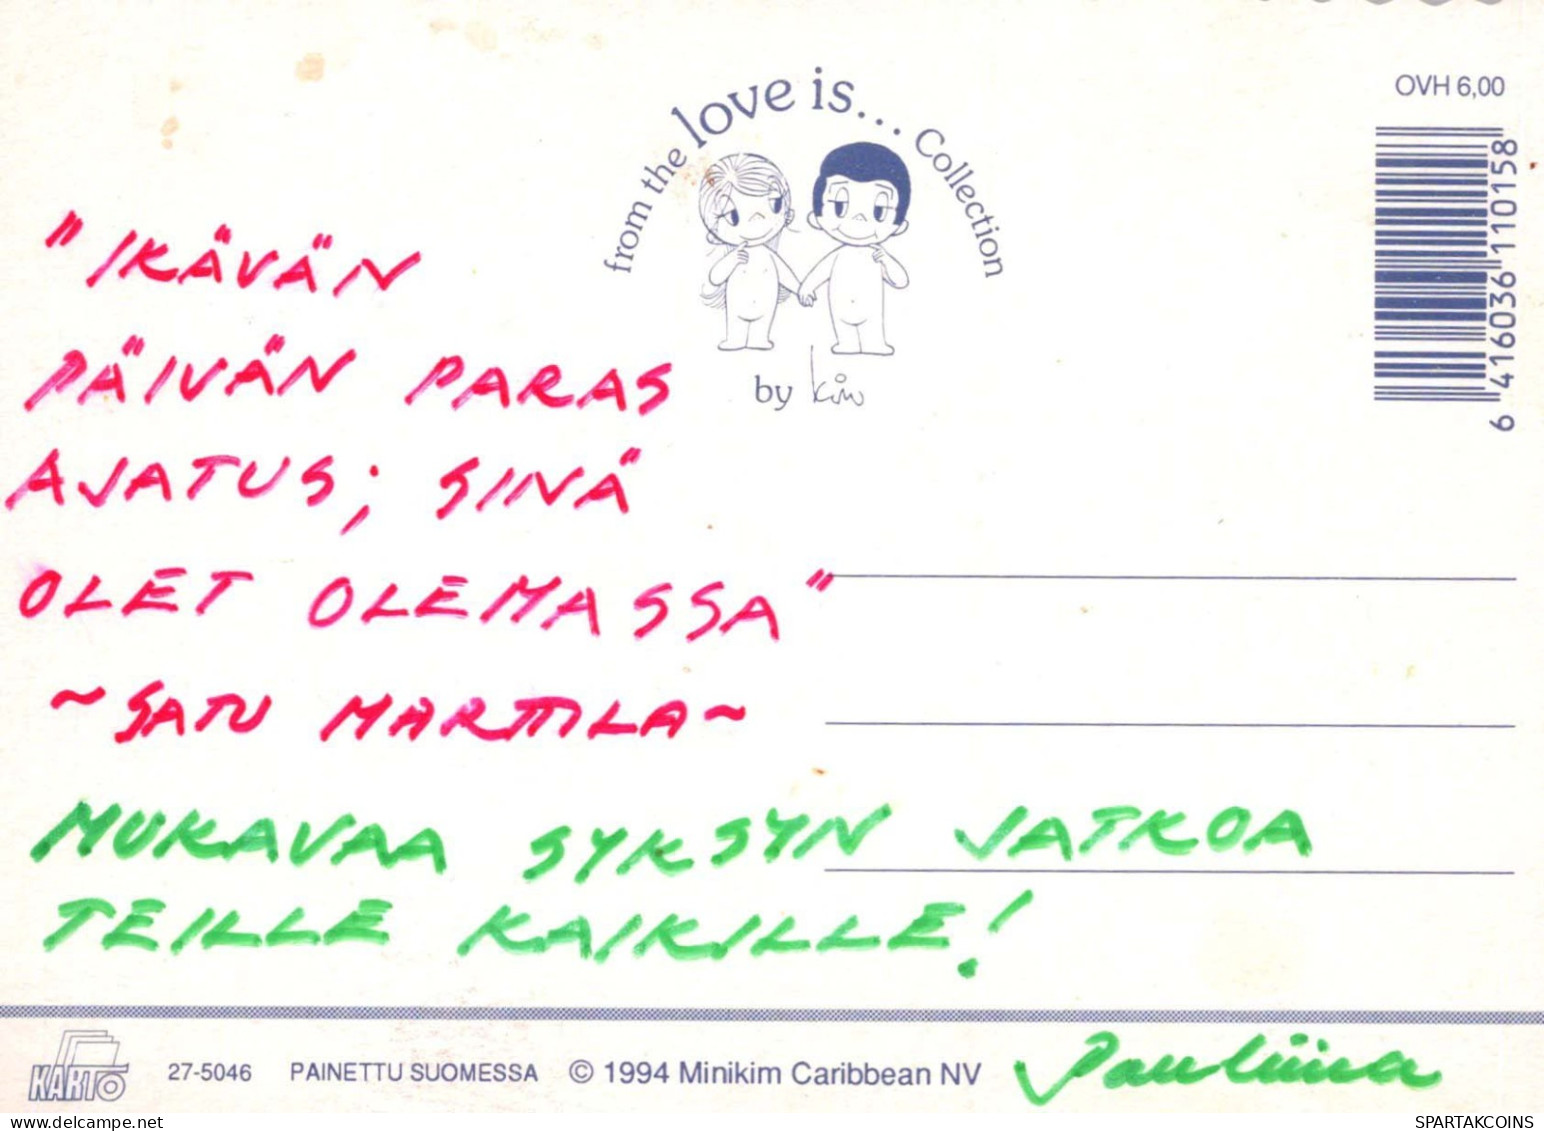 from the love is... Collection
by Kim
OVH 6,00
6 416036 110158
"IKÄVÄN
PÄIVÄN PARAS
AJATUS; SINÄ
OLET OLEMASSA"
~SATU MARTTILA~
MUKAVAA SYKSYN JATKOA
TEILLE KAIKILLE!
Pauliina
KARTO 27-5046 PAINETTU SUOMESSA © 1994 Minikim Caribbean NV
SPARTAKCOINS